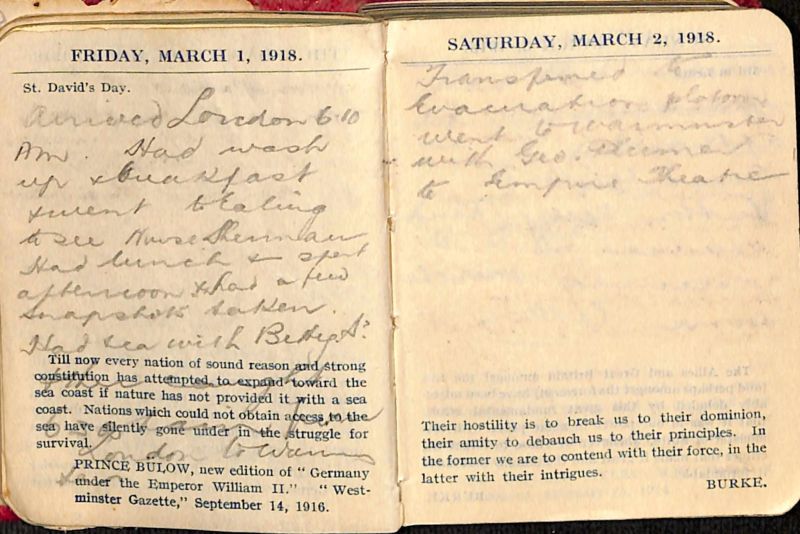 FRIDAY, MARCH 1, 1918.
St. David's Day.
Arrived London 6.10
Am. Had wash
up & breakfast
& went to Ealing
to see Nurse Sherman
Had lunch & spent
afternoon & had a few
snapshots taken.
Had tea with
Till now every nation of sound reason and strong
constitution has attempted to expand toward the
sea coast if nature has not provided it with a sea
coast. Nations which could not obtain access to the
sea have silently gone under in the struggle for
survival.
London to
PRINCE BULOW, new edition of "Germany
under the Emperor William II." "West-
minster Gazette," September 14, 1916.
SATURDAY, MARCH 2, 1918.
Transferred to
Evacuation platoon
went to Warminster
with Geo.
to Empire Theatre
Their hostility is to break us to their dominion,
their amity to debauch us to their principles. In
the former we are to contend with their force, in the
latter with their intrigues.
BURKE.